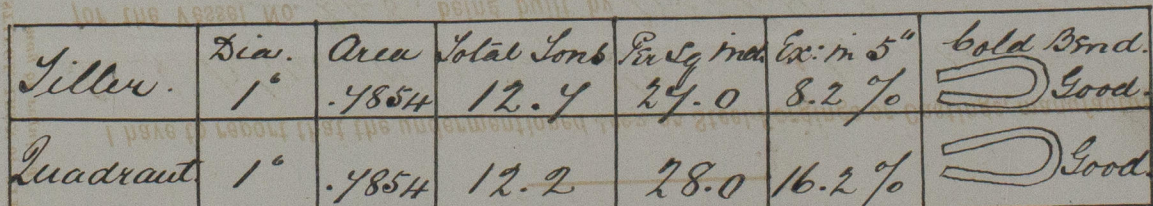 Dia. Area Total Tons Per Sq Inch. Ex: in 5" Cold Bend.
Tiller. 1" .7854 12.7 27.0 8.2 % Good.
Quadrant. 1" .7854 12.2 28.0 16.2 % Good.